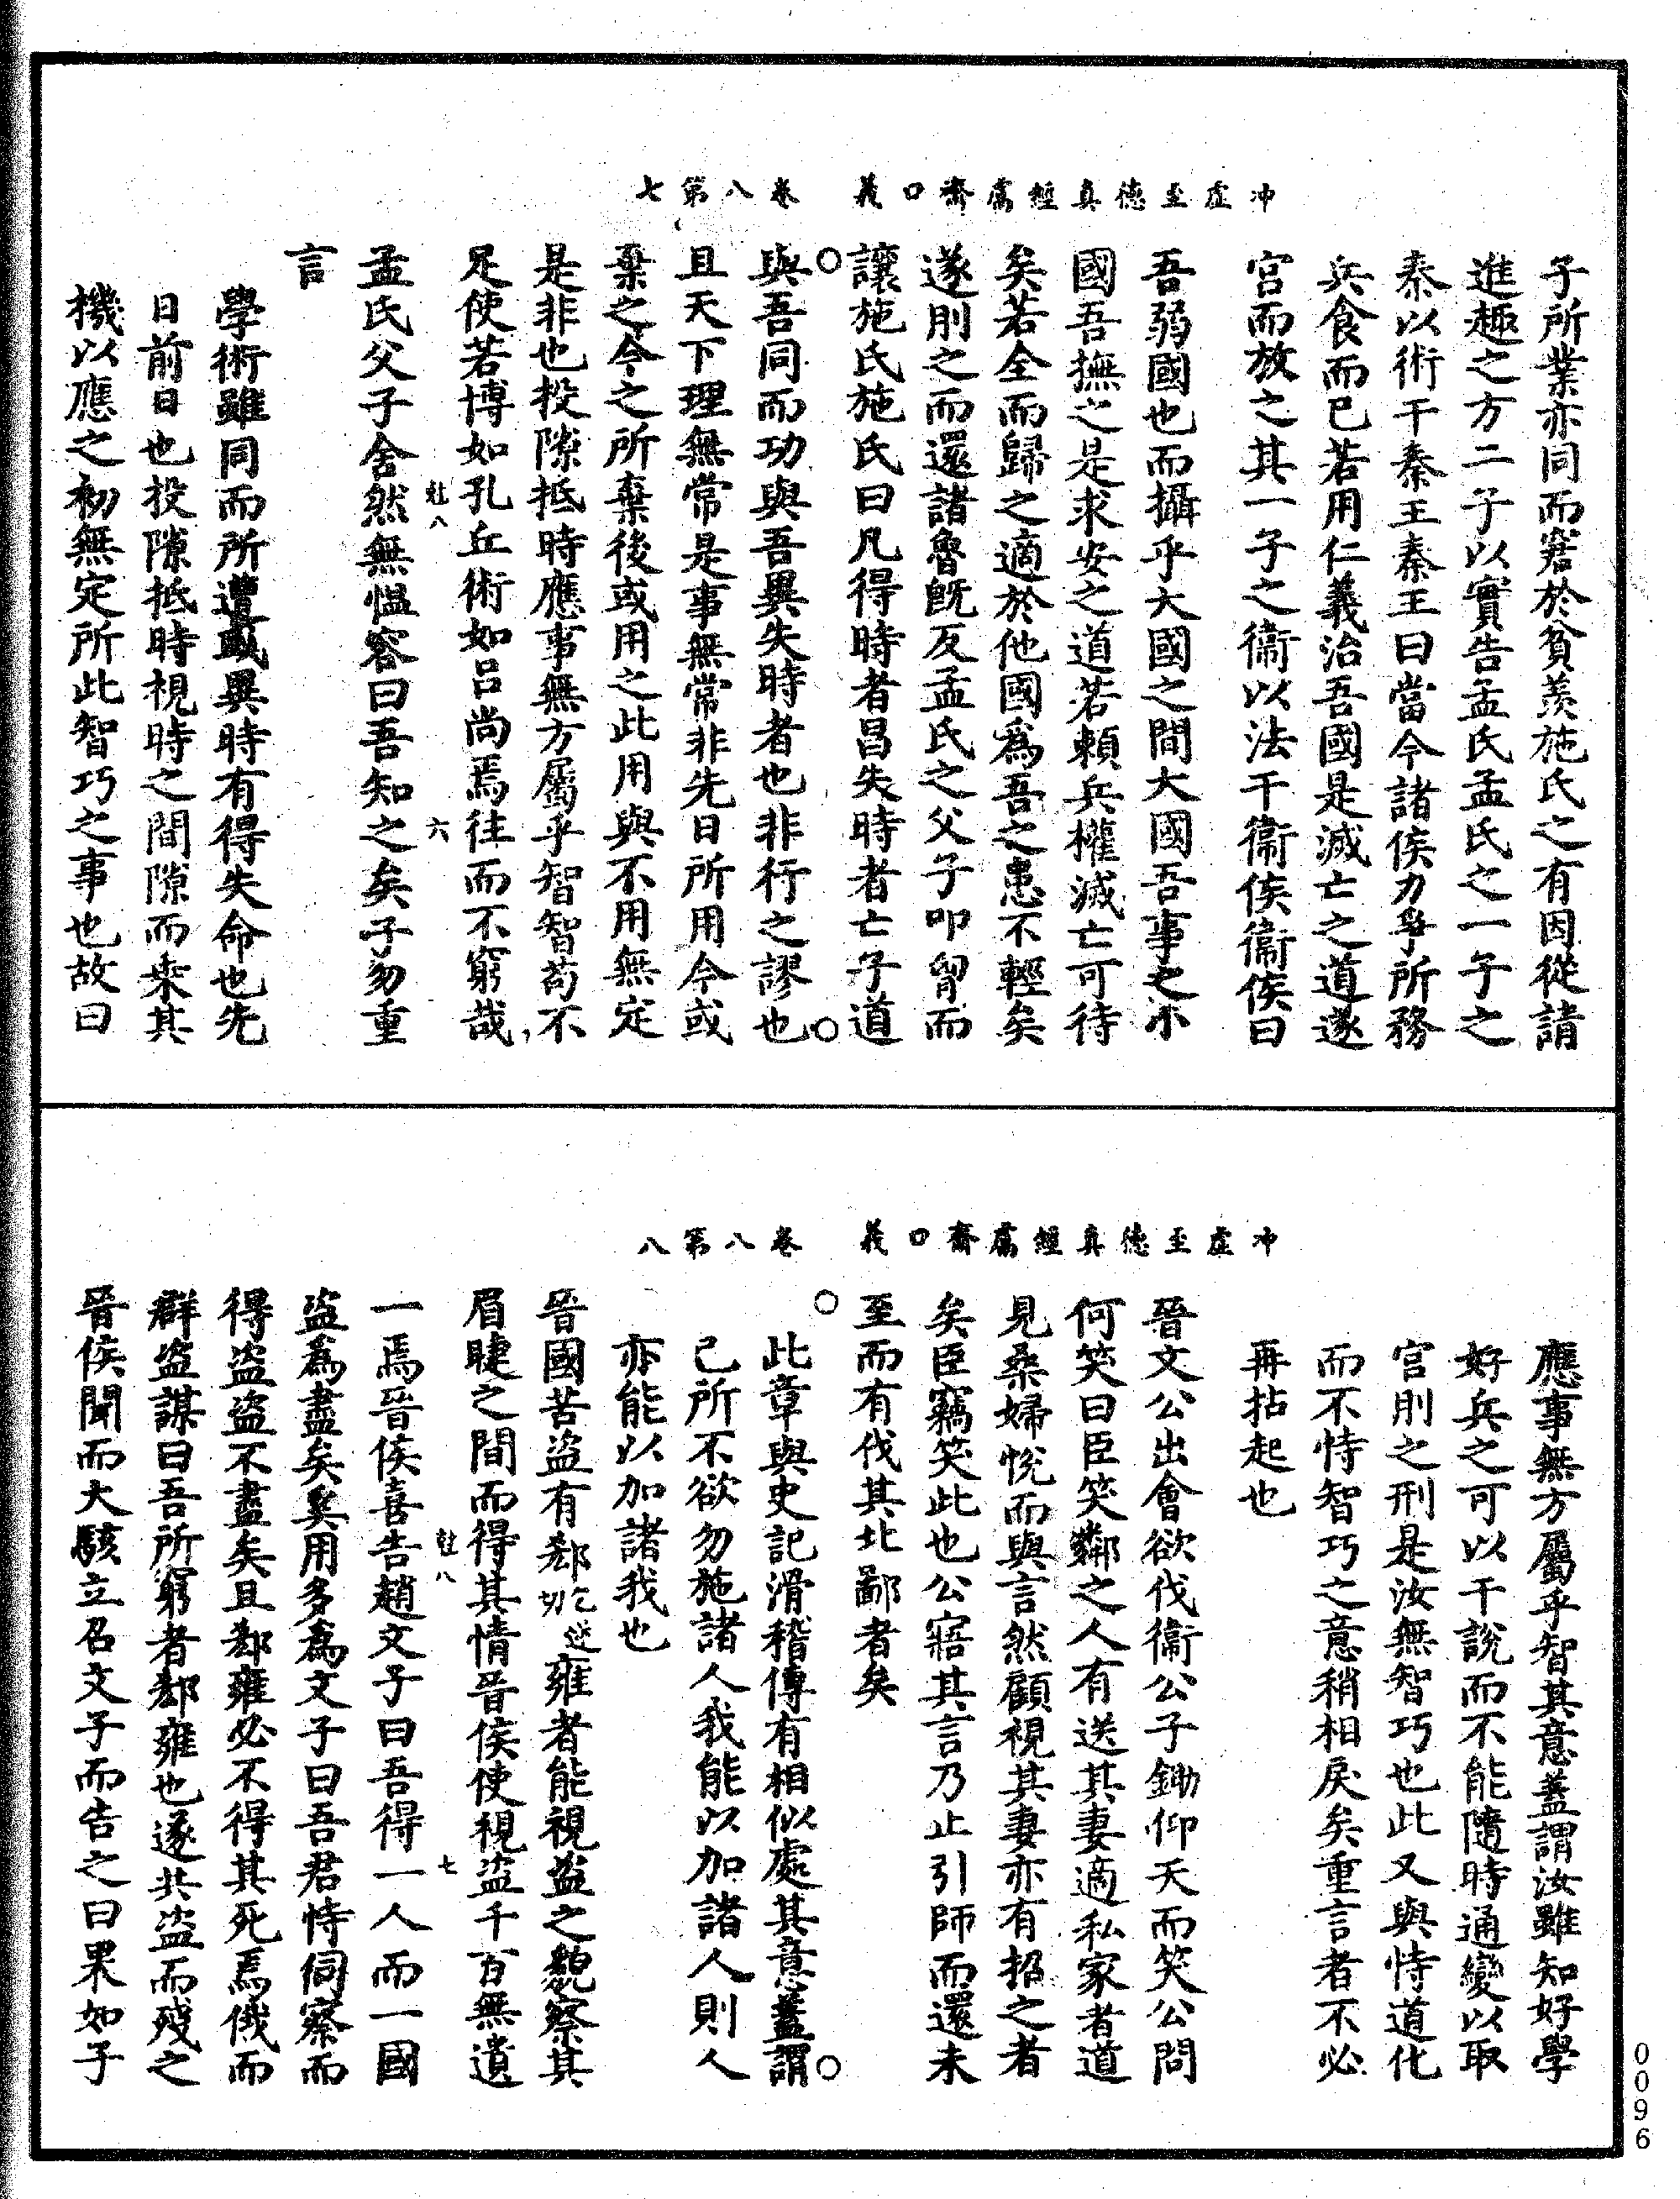 冲虛至德真經鬳齋口義　卷八第七
子所業亦同而窘於貧羨施氏之有因從請
進趣之方二子以實告孟氏孟氏之一子之
秦以術干秦王秦王曰當今諸侯力爭所務
兵食而已若用仁義治吾國是滅亡之道遂
宫而放之其一子之衞以法干衞侯衞侯曰
吾弱國也而攝乎大國之間大國吾事之小
國吾撫之是求安之道若賴兵權滅亡可待
矣若全而歸之適於他國爲吾之患不輕矣
遂刖之而還諸魯既反孟氏之父子叩胷而
讓施氏施氏曰凡得時者昌失時者亡子道
與吾同而功與吾異失時者也非行之謬也
且天下理無常是事無常非先日所用今或
棄之今之所棄後或用之此用與不用無定
是非也投隙抵時應事無方屬乎智智苟不
足使若博如孔丘術如吕尚焉往而不窮哉
魁八　六
孟氏父子舍然無愠容曰吾知之矣子勿重
言
學術雖同而所遭或異時有得失命也先
日前日也投隙抵時視時之間隙而来其
機以應之初無定所此智巧之事也故曰
冲虛至德真經鬳齋口義　卷八第八
應事無方屬乎智其意蓋謂汝雖知好學
好兵之可以干說而不能隨時通變以取
宫刖之刑是汝無智巧也此又與恃道化
而不恃智巧之意稍相戾矣重言者不必
再拈起也
晉文公出會欲伐衞公子鋤仰天而笑公問
何笑曰臣笑鄰之人有送其妻適私家者道
見桑婦悅而與言然顧視其妻亦有招之者
矣臣竊笑此也公寤其言乃止引師而還未
至而有伐其北鄙者矣
此章與史記滑稽傳有相似處其意蓋謂
己所不欲勿施諸人我能以加諸人則人
亦能以加諸我也
晉國苦盜有郄乞逆切雍者能視盜之貌察其
眉睫之間而得其情晉侯使視盜千百無遺
魁八　七
一焉晉侯喜告趙文子曰吾得一人而一國
盜爲盡矣奚用多爲文子曰吾君恃伺察而
得盜盜不盡矣且郄雍必不得其死焉俄而
群盜謀曰吾所窮者郄雍也遂共盜而殘之
晉侯聞而大駭立召文子而告之曰果如子
0096